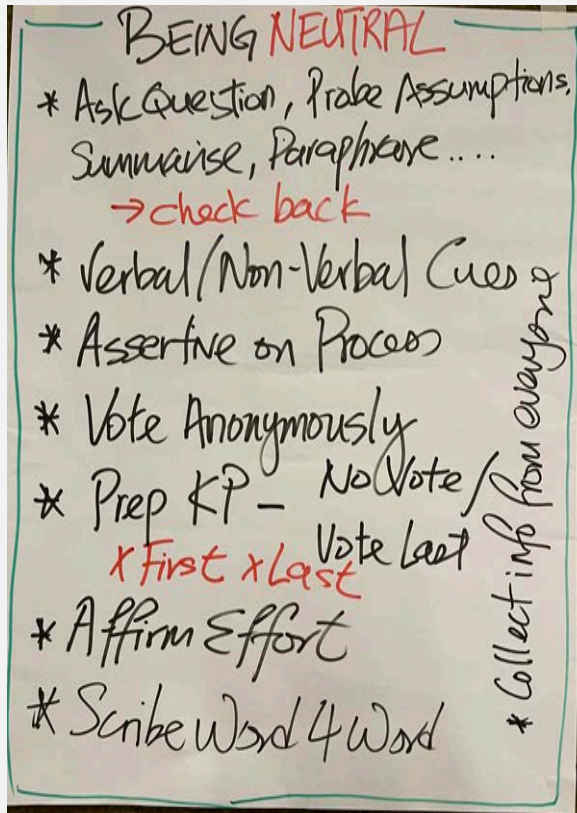 BEING NEUTRAL
* Ask Question, Probe Assumptions,
Summarise, Paraphrase....
→ check back
* Verbal/Non-Verbal Cues
* Assertive on Process
* Vote Anonymously
* Prep KP - No Vote/
Vote Last
x First x Last
* Affirm Effort
* Scribe Word 4 Word
* Collect info from everyone